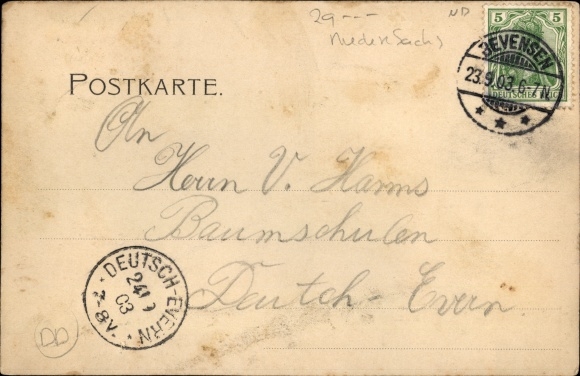 29---
ND
Niedersachs
5 5
DEUTSCHES REICH
BEVENSEN
23.9.03.6-7N.
POSTKARTE.
An
Herrn V. Harms
Baumschulen
Deutsch-Evern
DEUTSCH-EVERN
24 9
03
7-8V.
DD